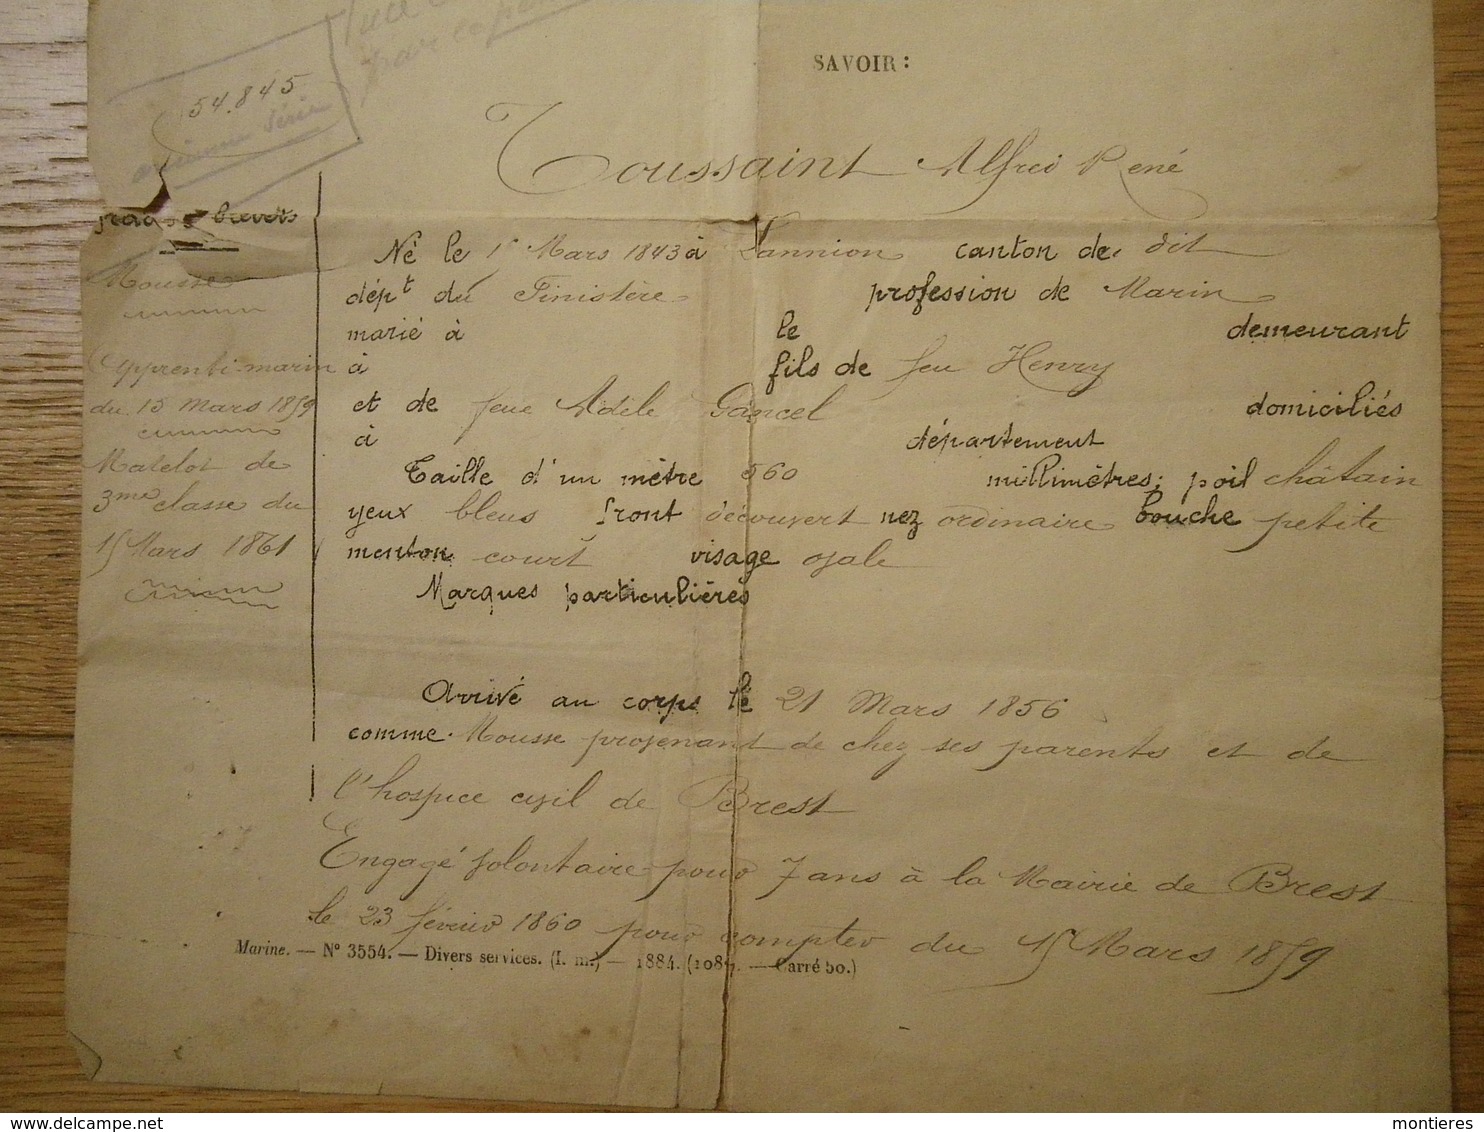 par
SAVOIR :
54.845
ancienne série
Toussaint Alfred René
grades brevets
Né le 1r Mars 1843 à Lannion canton de dit
Mousse
dépt du Finistère profession de Marin
marié à le demeurant
Apprenti-marin
à fils de feu Henry
du 15 Mars 1859
et de feue Adèle Gancel domiciliés
à département
Matelot de
Taille d'un mètre 560 millimètres; poil châtain
3me classe du
yeux bleus front découvert nez ordinaire bouche petite
15 Mars 1861
menton court visage ovale
Marques particulières
Arrivé au corps le 21 Mars 1856
comme Mousse provenant de chez ses parents et de
l'hospice civil de Brest
Engagé volontaire pour 7 ans à la Mairie de Brest
le 23 février 1860 pour compter du 15 Mars 1859
Marine. — N° 3554. — Divers services. (I. m.) — 1884. — Carré 50.)
www.delcampe.net
montieres